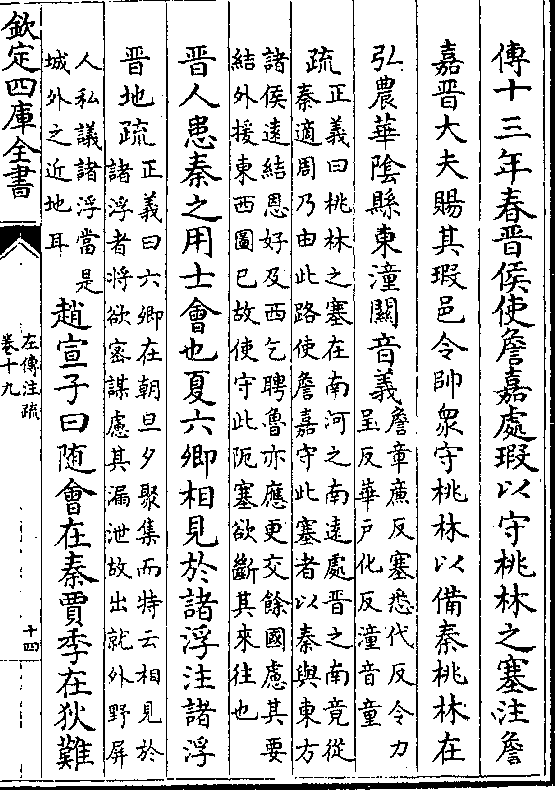 傳十三年春晉侯使詹嘉處瑕以守桃林之塞注詹
嘉晉大夫賜其瑕邑令帥衆守桃林以備秦桃林在
弘農華陰縣東潼關音義
詹章廉反塞悉代反令力
呈反華戸化反潼音童
疏
正義曰桃林之塞在南河之南遠處晉之南竟從
秦適周乃由此路使詹嘉守此塞者以秦與東方
諸侯遠結恩好及西乞聘魯亦應更交餘國慮其要
結外援東西圖己故使守此阨塞欲斷其來往也
晉人患秦之用士會也夏六卿相見於諸浮注諸浮
晉地疏
正義曰六卿在朝旦夕聚集而特云相見於
諸浮者將欲密謀慮其漏泄故出就外野屏
人私議諸浮當是
城外之近地耳
趙宣子曰随會在秦賈季在狄難
欽定四庫全書
左傳注疏
卷十九
十四